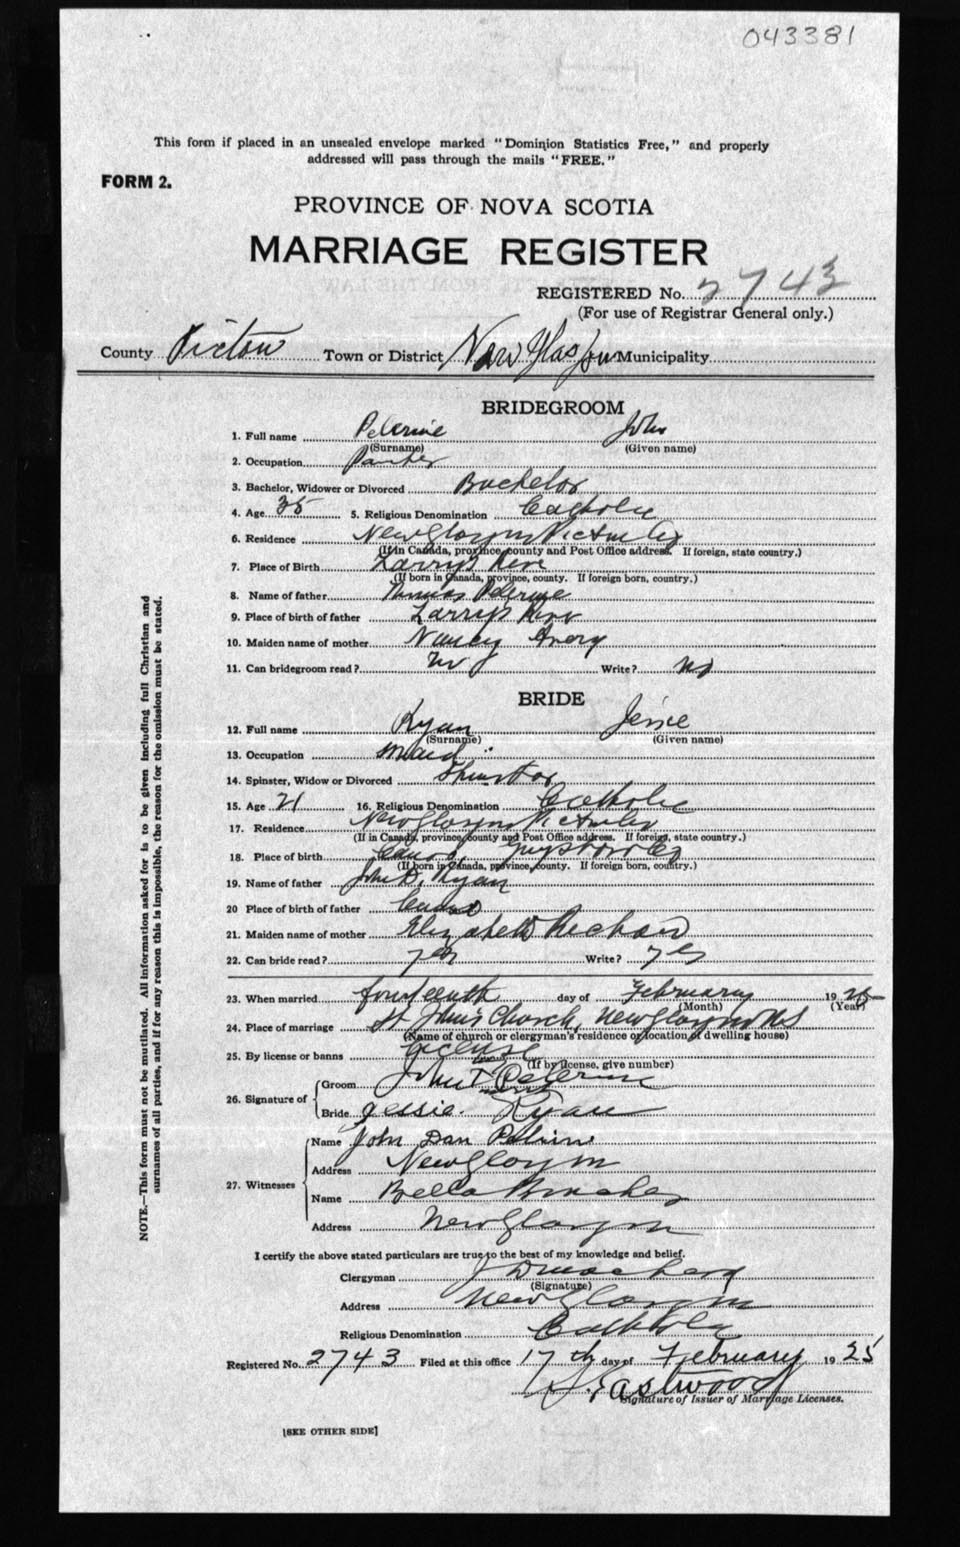 043381
This form if placed in an unsealed envelope marked "Dominion Statistics Free," and properly
addressed will pass through the mails "FREE."
FORM 2.
PROVINCE OF NOVA SCOTIA
MARRIAGE REGISTER
REGISTERED No. 2743
(For use of Registrar General only.)
County Pictou Town or District New Glasgow Municipality
BRIDEGROOM
1. Full name Pelerine John
(Surname) (Given name)
2. Occupation
3. Bachelor, Widower or Divorced Bachelor
4. Age 35 5. Religious Denomination Catholic
6. Residence New Glasgow Pictou Co
(If in Canada, province, county and Post Office address. If foreign, state country.)
7. Place of Birth Larrys River
(If born in Canada, province, county. If foreign born, country.)
8. Name of father Thomas Pelerine
9. Place of birth of father Larrys River
10. Maiden name of mother Nancy Avery
11. Can bridegroom read? no Write? no
BRIDE
12. Full name Ryan Jessie
(Surname) (Given name)
13. Occupation maid
14. Spinster, Widow or Divorced Spinster
15. Age 21 16. Religious Denomination Catholic
17. Residence New Glasgow Pictou Co
(If in Canada, province, county and Post Office address. If foreign, state country.)
18. Place of birth Canso, Guysboro Co
(If born in Canada, province, county. If foreign born, country.)
19. Name of father John D. Ryan
20 Place of birth of father Canso
21. Maiden name of mother Elizabeth Richard
22. Can bride read? yes Write? yes
23. When married fourteenth day of February 1925
(Month) (Year)
24. Place of marriage St John's Church, New Glasgow NS
(Name of church or clergyman's residence or location of dwelling house)
25. By license or banns license
(If by license, give number)
26. Signature of Groom John Pelerine
Bride Jessie Ryan
27. Witnesses Name John Dan Pelrine
Address New Glasgow
Name Bella
Address New Glasgow
I certify the above stated particulars are true to the best of my knowledge and belief.
Clergyman
(Signature)
Address New Glasgow
Religious Denomination Catholic
Registered No. 2743 Filed at this office 17th day of February 1925
Eastwood
Signature of Issuer of Marriage Licenses.
[SEE OTHER SIDE]
NOTE.—This form must not be mutilated. All information asked for is to be given including full Christian and
surnames of all parties, and if for any reason this is impossible, the reason for the omission must be stated.